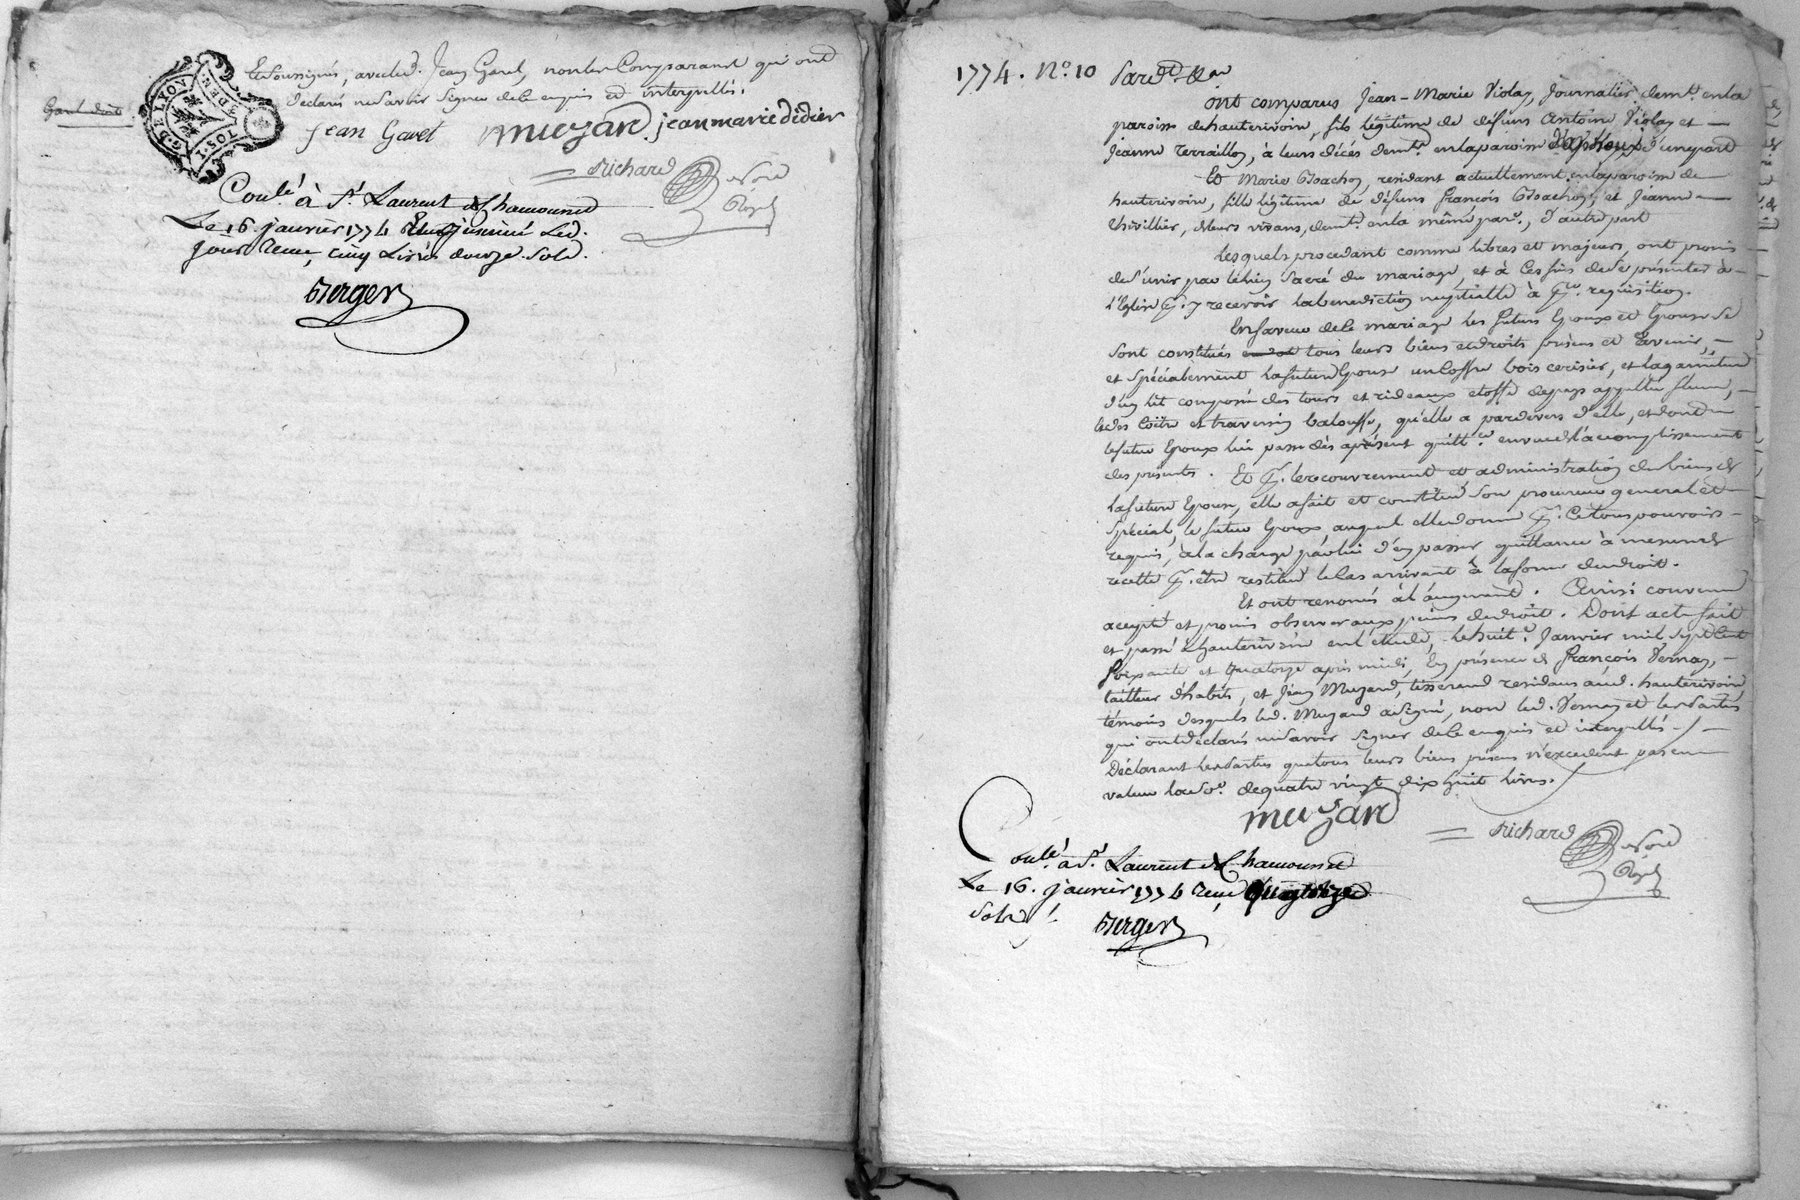 Et soussignés, avec led. Jean Garel, non les Comparants qui ont
Garel dud
déclarés ne savoir signer de ce enquis et interpellés.
G. DE LYON
TOS. 1
3 DEN.
jean Gavet muzard jean marie dedier
Richard
Noire Royal
Conlé à St Laurent de Chamousset
Le 16. janvier 1774
jour Reçu, cinq Livres douze Sols.
Berger
1774. No. 10 Pardt. &ar
ont comparus Jean-Marie Violay, Journalier demt. en la
paroisse de hauterivoire, fils légitime de défunts Antoine Violay et
Jeanne Terraillon, à leurs décès demts. en la paroisse d'une part
Et Marie residant actuellement en la paroisse de
hauterivoire, fille légitime de défunts françois et Jeanne
Chivillier, demts. en la même parse., d'autre part
Lesquels procedant comme libres et majeurs, ont promis
de s'unir par le lien sacré du mariage, et à ces fins de se présenter à
l'Eglise pr. y recevoir la bénédiction nuptialle à pre. requisition.
En faveur de ce mariage les futurs Epoux et Epouse se
sont constitués tous leurs biens et droits présens et avenir,
et spécialement la future Epouse un Coffre bois cerisier, et la garniture
d'un lit composé des tours et rideaux etoffe du pays appellée
et traversin balouffe, qu'elle a pardevers d'elle, et dont
le futur Epoux lui passe dès apresent quittce. en vue de l'accomplissement
des présentes. Et pr. le recouvrement et administration des biens de
la future Epouse, elle a fait et constitué son procureur general et
special, le futur Epoux auquel elle donne pr. ce tous pouvoirs
requis, à la charge par lui d'en passer quittance à mesure de
recette pr. être restitué le cas arrivant à la forme du droit.
Et ont renoncés à l'augment. Ainsi convenu
accepté et promis observer aux peines de droit. Dont acte fait
et passé à hauterivoire en l'etude, le huite. Janvier mil sept cent
soixante et quatorze après midi, En présence de françois Vernay,
tailleur d'habits, et Jean Muzard, tisserand residans aud. hauterivoire
témoins desquels led. Muzard a signé, non led. Vernay et les parties
qui ont déclarés ne savoir signer de ce enquis et interpellés.
Déclarant les parties que tous leurs biens présens n'excedent pas en
valeur la so. de quatre vingt dix huit livres.
muzard
Richard
Noire Royal
Conlé à St Laurent de Chamousset
Le 16. janvier 1774 Reçu quatorze
Sols
Berger